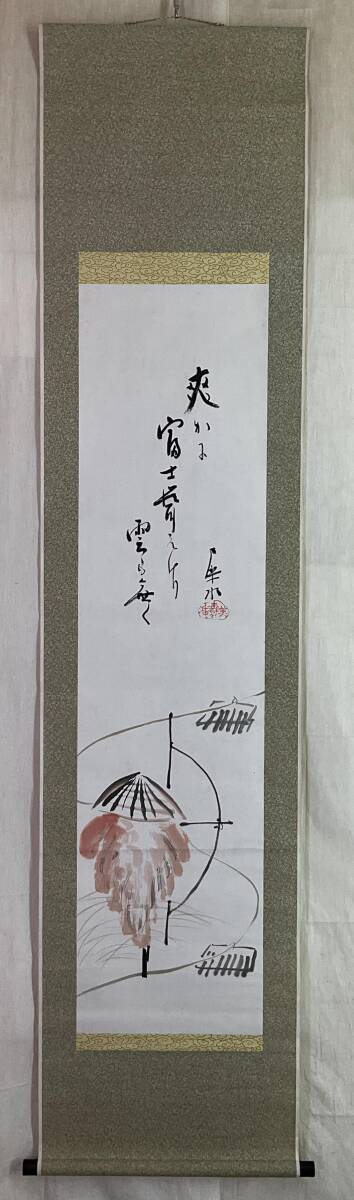 爽かに
富士聳えけり
雲も無く